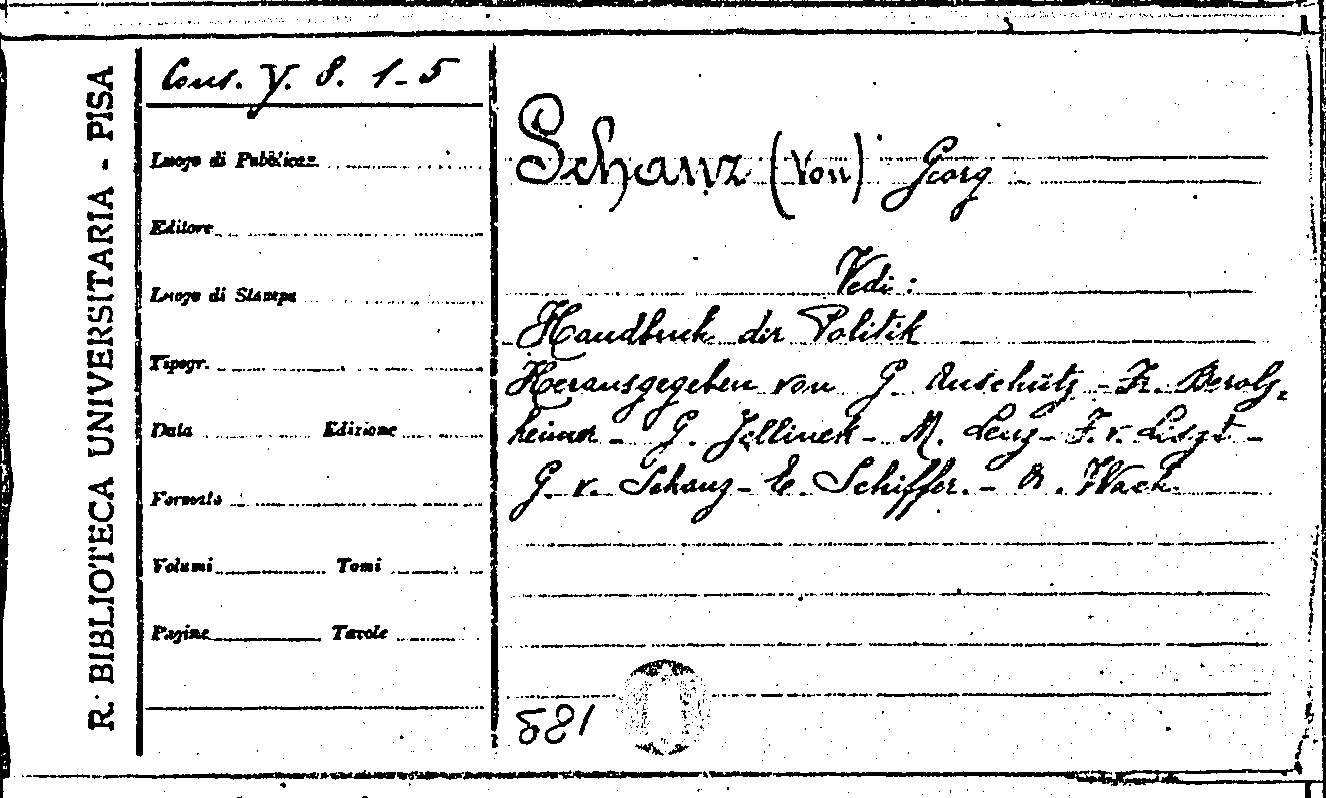 R. BIBLIOTECA UNIVERSITARIA - PISA
Cons. Y. 8. 1-5
Luogo di Pubblicaz.
Editore
Luogo di Stampa
Tipogr.
Data Edizione
Formato
Volumi Tomi
Pagine Tavole
Schanz (von) Georg
Vedi:
Handbuch der Politik
Herausgegeben von G. Anschütz - Fr. Berolz-
heimer - G. Jellinek - M. Lenz - F. v. Liszt -
G. v. Schanz - E. Schiffer. - A. Wach.
581